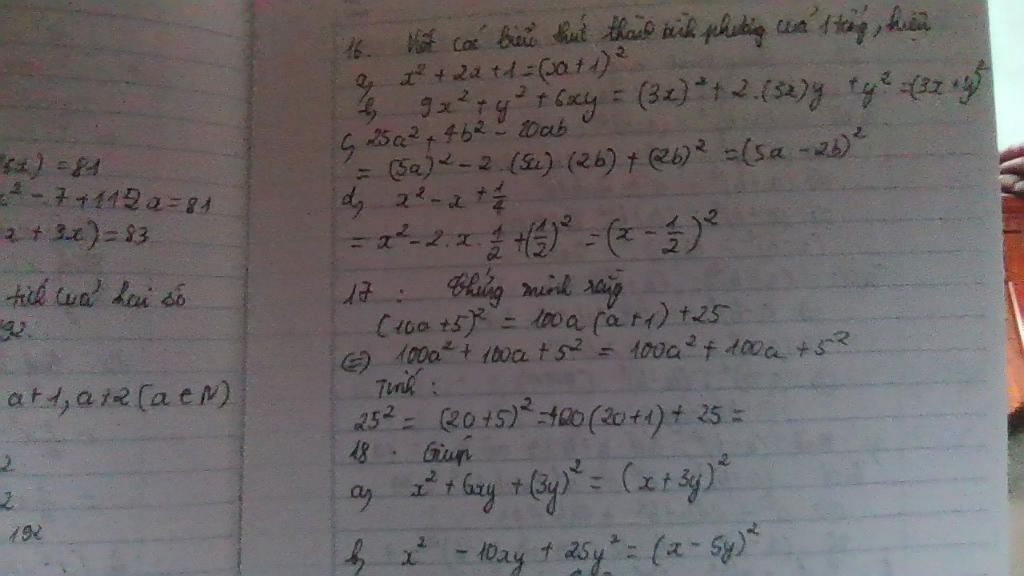 6x) = 81
x² - 7 + 112a = 81
x + 3x) = 83
tích của hai số
192.
a+1, a+2 (a ∈ N)
2
2
192
16. Viết các biểu thức thành bình phương của 1 tổng, hiệu
a, x² + 2x + 1 = (x + 1)²
b, 9x² + y² + 6xy = (3x)² + 2.(3x)y + y² = (3x + y)²
c, 25a² + 4b² - 20ab
= (5a)² - 2.(5a).(2b) + (2b)² = (5a - 2b)²
d, x² - x + 1/4
= x² - 2.x.1/2 + (1/2)² = (x - 1/2)²
17: Chứng minh rằng
(10a + 5)² = 100a (a + 1) + 25
(=) 100a² + 100a + 5² = 100a² + 100a + 5²
Tính:
25² = (20 + 5)² = 100 (20 + 1) + 25 =
18. Giúp
a, x² + 6xy + (3y)² = (x + 3y)²
b, x² - 10xy + 25y² = (x - 5y)²